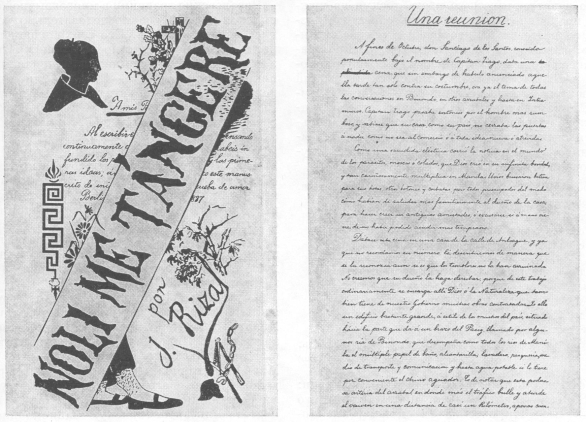 NOLI ME TÁNGERE
por
J. Riza
Á mis P
Al escribir
continuamente
fundido los p
ras ideas, á
creto de
Berl
pensando
habéis in
las prime-
este manus
prueba de amor
887
Una reunion.
A fines de Octubre, don Santiago de los Santos, conocido
popularmente bajo el nombre de Capitan Tiago, daba una
cena, que, sin embargo de haberlo anunciado aque
lla tarde tan solo contra su costumbre, era ya el tema de todas
las conversaciones en Binondo, en otros arrabales y hasta en Intra-
muros. Capitan Tiago pasaba entonces por el hombre mas rum
boso y sabíase que su casa, como su país, no cerraba las puertas
á nadie como no sea al comercio ó á toda idea nueva ó atrevida.
Como una sacudida eléctrica corrió la noticia en el mundo
de los parásitos, moscas ó colados, que Dios crió en su infinita bondad,
y tan cariñosamente multiplica en Manila. Unos buscaron betun
para sus botas, otros botones y corbatas, pero todos preocupados del modo
como habian de saludar mas familiarmente al dueño de la casa
para hacer creer en antiguas amistades, ó excusarse, si á mano vie-
ne, de no haber podido acudir mas temprano.
Dábase esta cena en una casa de la calle de Anloague, y ya
que no recordamos su número la describiremos de manera que
se la reconozca aun, si es que los temblores no la han arruinado.
No creemos que su dueño la haya hecho derribar, porque de este trabajo
ordinariamente se encarga allí Dios ó la Naturaleza que tam-
bien tiene de nuestro Gobierno muchas obras contratadas. Es ella
un edificio bastante grande, al estilo de muchos del país, situado
hácia la parte que da á un brazo del Pasig llamado por algu-
nos ria de Binondo, que desempeña como todos los rios de Mani-
la el múltiple papel de baño, alcantarilla, lavadero, pesquería, me-
dio de transporte y comunicacion y hasta agua potable, si lo tiene
por conveniente el chino aguador. Es de notar que esta podero-
sa arteria del arrabal en donde mas el tráfico bulle y aturde
el vaiven en una distancia de casi un kilómetro, apenas cuen-